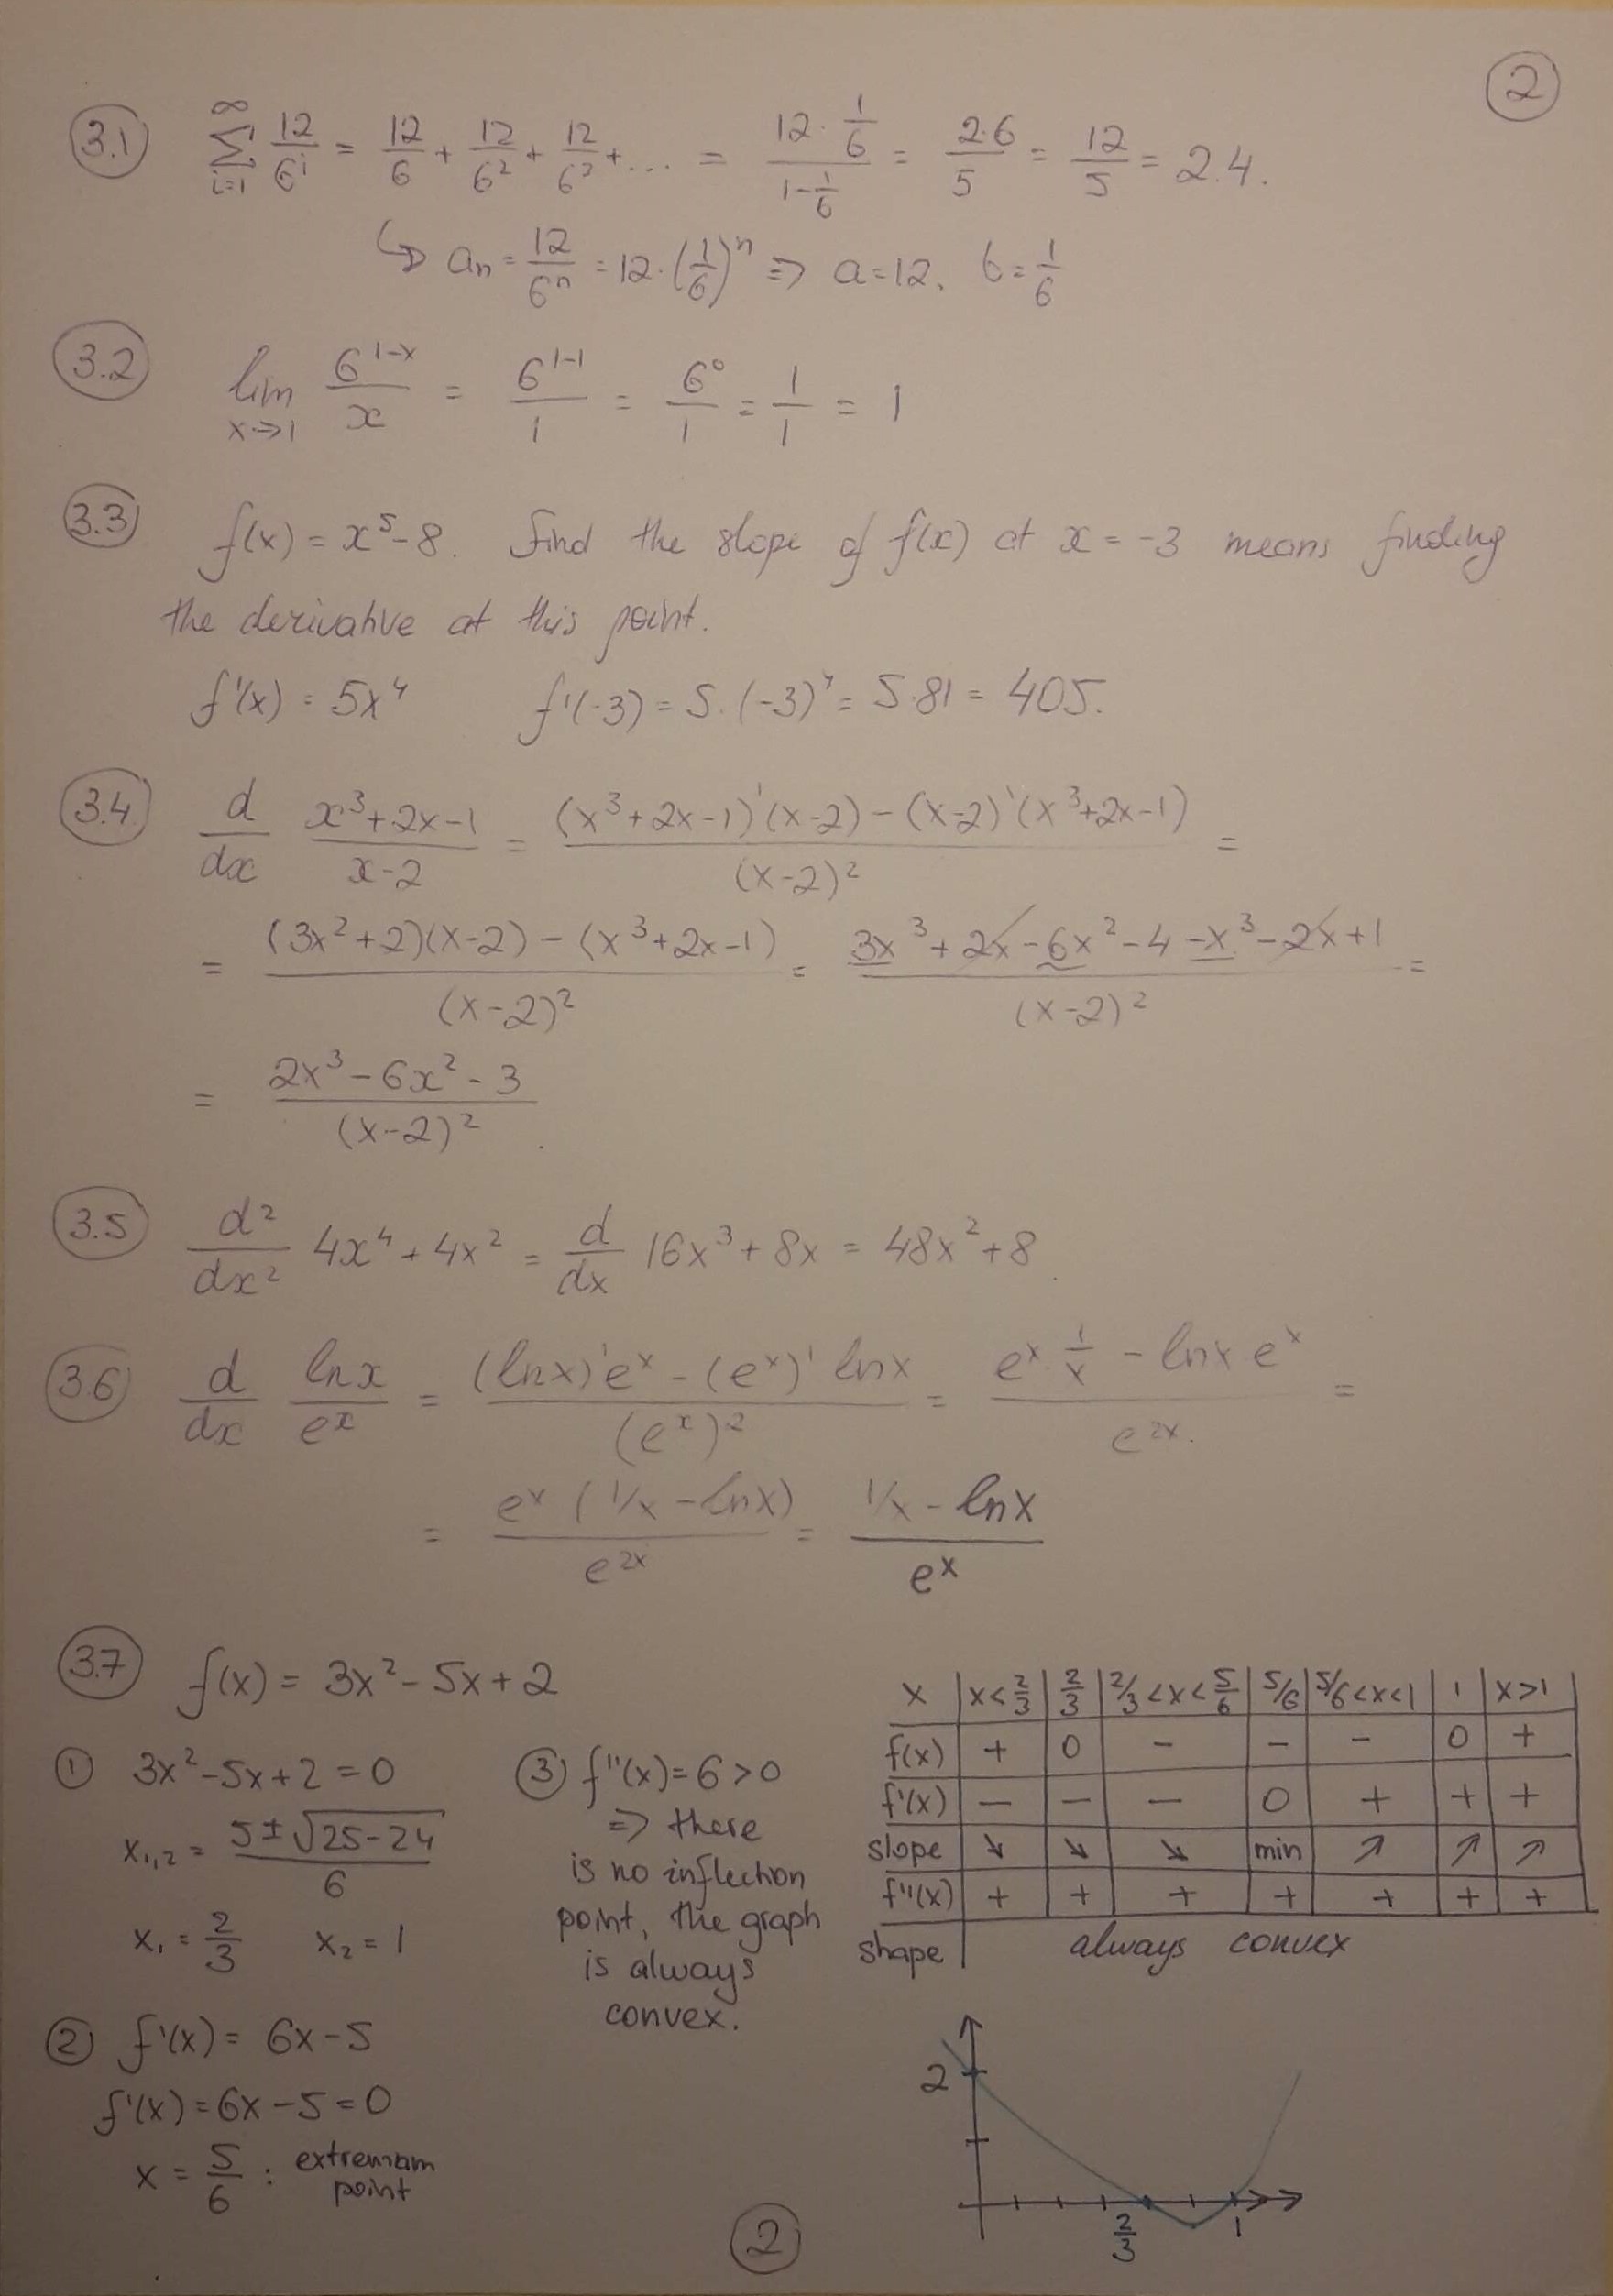 2
3.1 ∞ ∑ i=1 12/6^i = 12/6 + 12/6² + 12/6³ + ... = (12 · 1/6)/(1 - 1/6) = 2·6/5 = 12/5 = 2.4.
↳ aₙ = 12/6ⁿ = 12 · (1/6)ⁿ ⇒ a = 12, b = 1/6
3.2 lim x→1 6^(1-x)/x = 6^(1-1)/1 = 6⁰/1 = 1/1 = 1
3.3 f(x) = x⁵ - 8. Find the slope of f(x) at x = -3 means finding
the derivative at this point.
f'(x) = 5x⁴ f'(-3) = 5 · (-3)⁴ = 5·81 = 405.
3.4 d/dx (x³+2x-1)/(x-2) = ((x³+2x-1)'(x-2) - (x-2)'(x³+2x-1))/(x-2)² =
= ((3x²+2)(x-2) - (x³+2x-1))/(x-2)² = (3x³ + 2x - 6x² - 4 - x³ - 2x + 1)/(x-2)² =
= (2x³ - 6x² - 3)/(x-2)².
3.5 d²/dx² 4x⁴ + 4x² = d/dx 16x³ + 8x = 48x² + 8.
3.6 d/dx lnx/eˣ = ((lnx)'eˣ - (eˣ)' lnx)/(eˣ)² = (eˣ · 1/x - lnx eˣ)/e²ˣ. =
= eˣ(1/x - lnx)/e²ˣ = (1/x - lnx)/eˣ
3.7 f(x) = 3x² - 5x + 2
① 3x² - 5x + 2 = 0
x₁,₂ = (5 ± √(25-24))/6
x₁ = 2/3 x₂ = 1
② f'(x) = 6x - 5
f'(x) = 6x - 5 = 0
x = 5/6 : extremam
point
③ f''(x) = 6 > 0
⇒ there
is no inflection
point, the graph
is always
convex.
x | x<2/3 | 2/3 | 2/3<x<5/6 | 5/6 | 5/6<x<1 | 1 | x>1
f(x) | + | 0 | - | - | - | 0 | +
f'(x) | - | - | - | 0 | + | + | +
slope | ↘ | ↘ | ↘ | min | ↗ | ↗ | ↗
f''(x) | + | + | + | + | + | + | +
shape | always convex
2
2/3 1
2